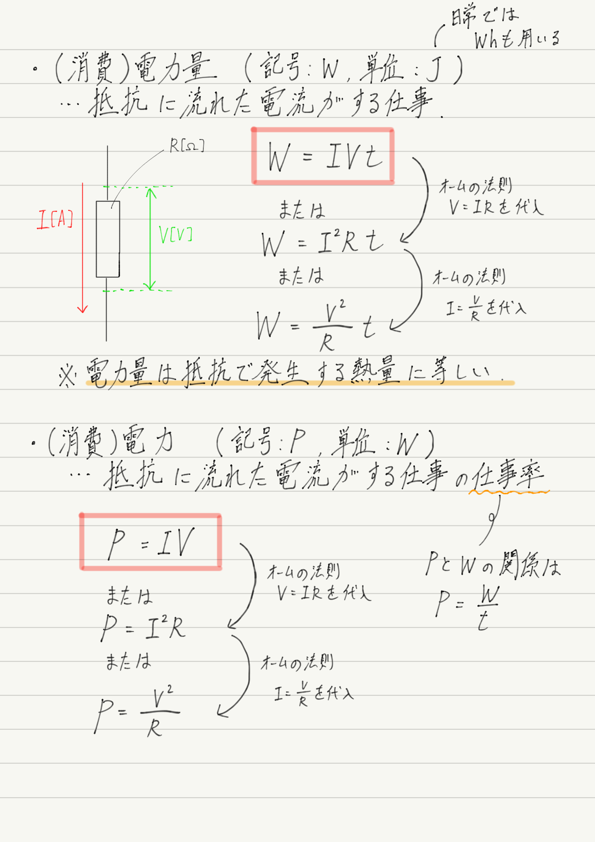 日常では
Whも用いる
・(消費)電力量 (記号:W, 単位:J)
… 抵抗に流れた電流がする仕事.
R[Ω]
I[A]
V[V]
W = IVt
または
W = I²Rt
または
W = V²/R t
オームの法則
V=IRを代入
オームの法則
I=V/Rを代入
※ 電力量は抵抗で発生する熱量に等しい.
・(消費)電力 (記号:P, 単位:W)
… 抵抗に流れた電流がする仕事の仕事率
P = IV
または
P = I²R
または
P = V²/R
オームの法則
V=IRを代入
オームの法則
I=V/Rを代入
PとWの関係は
P = W/t